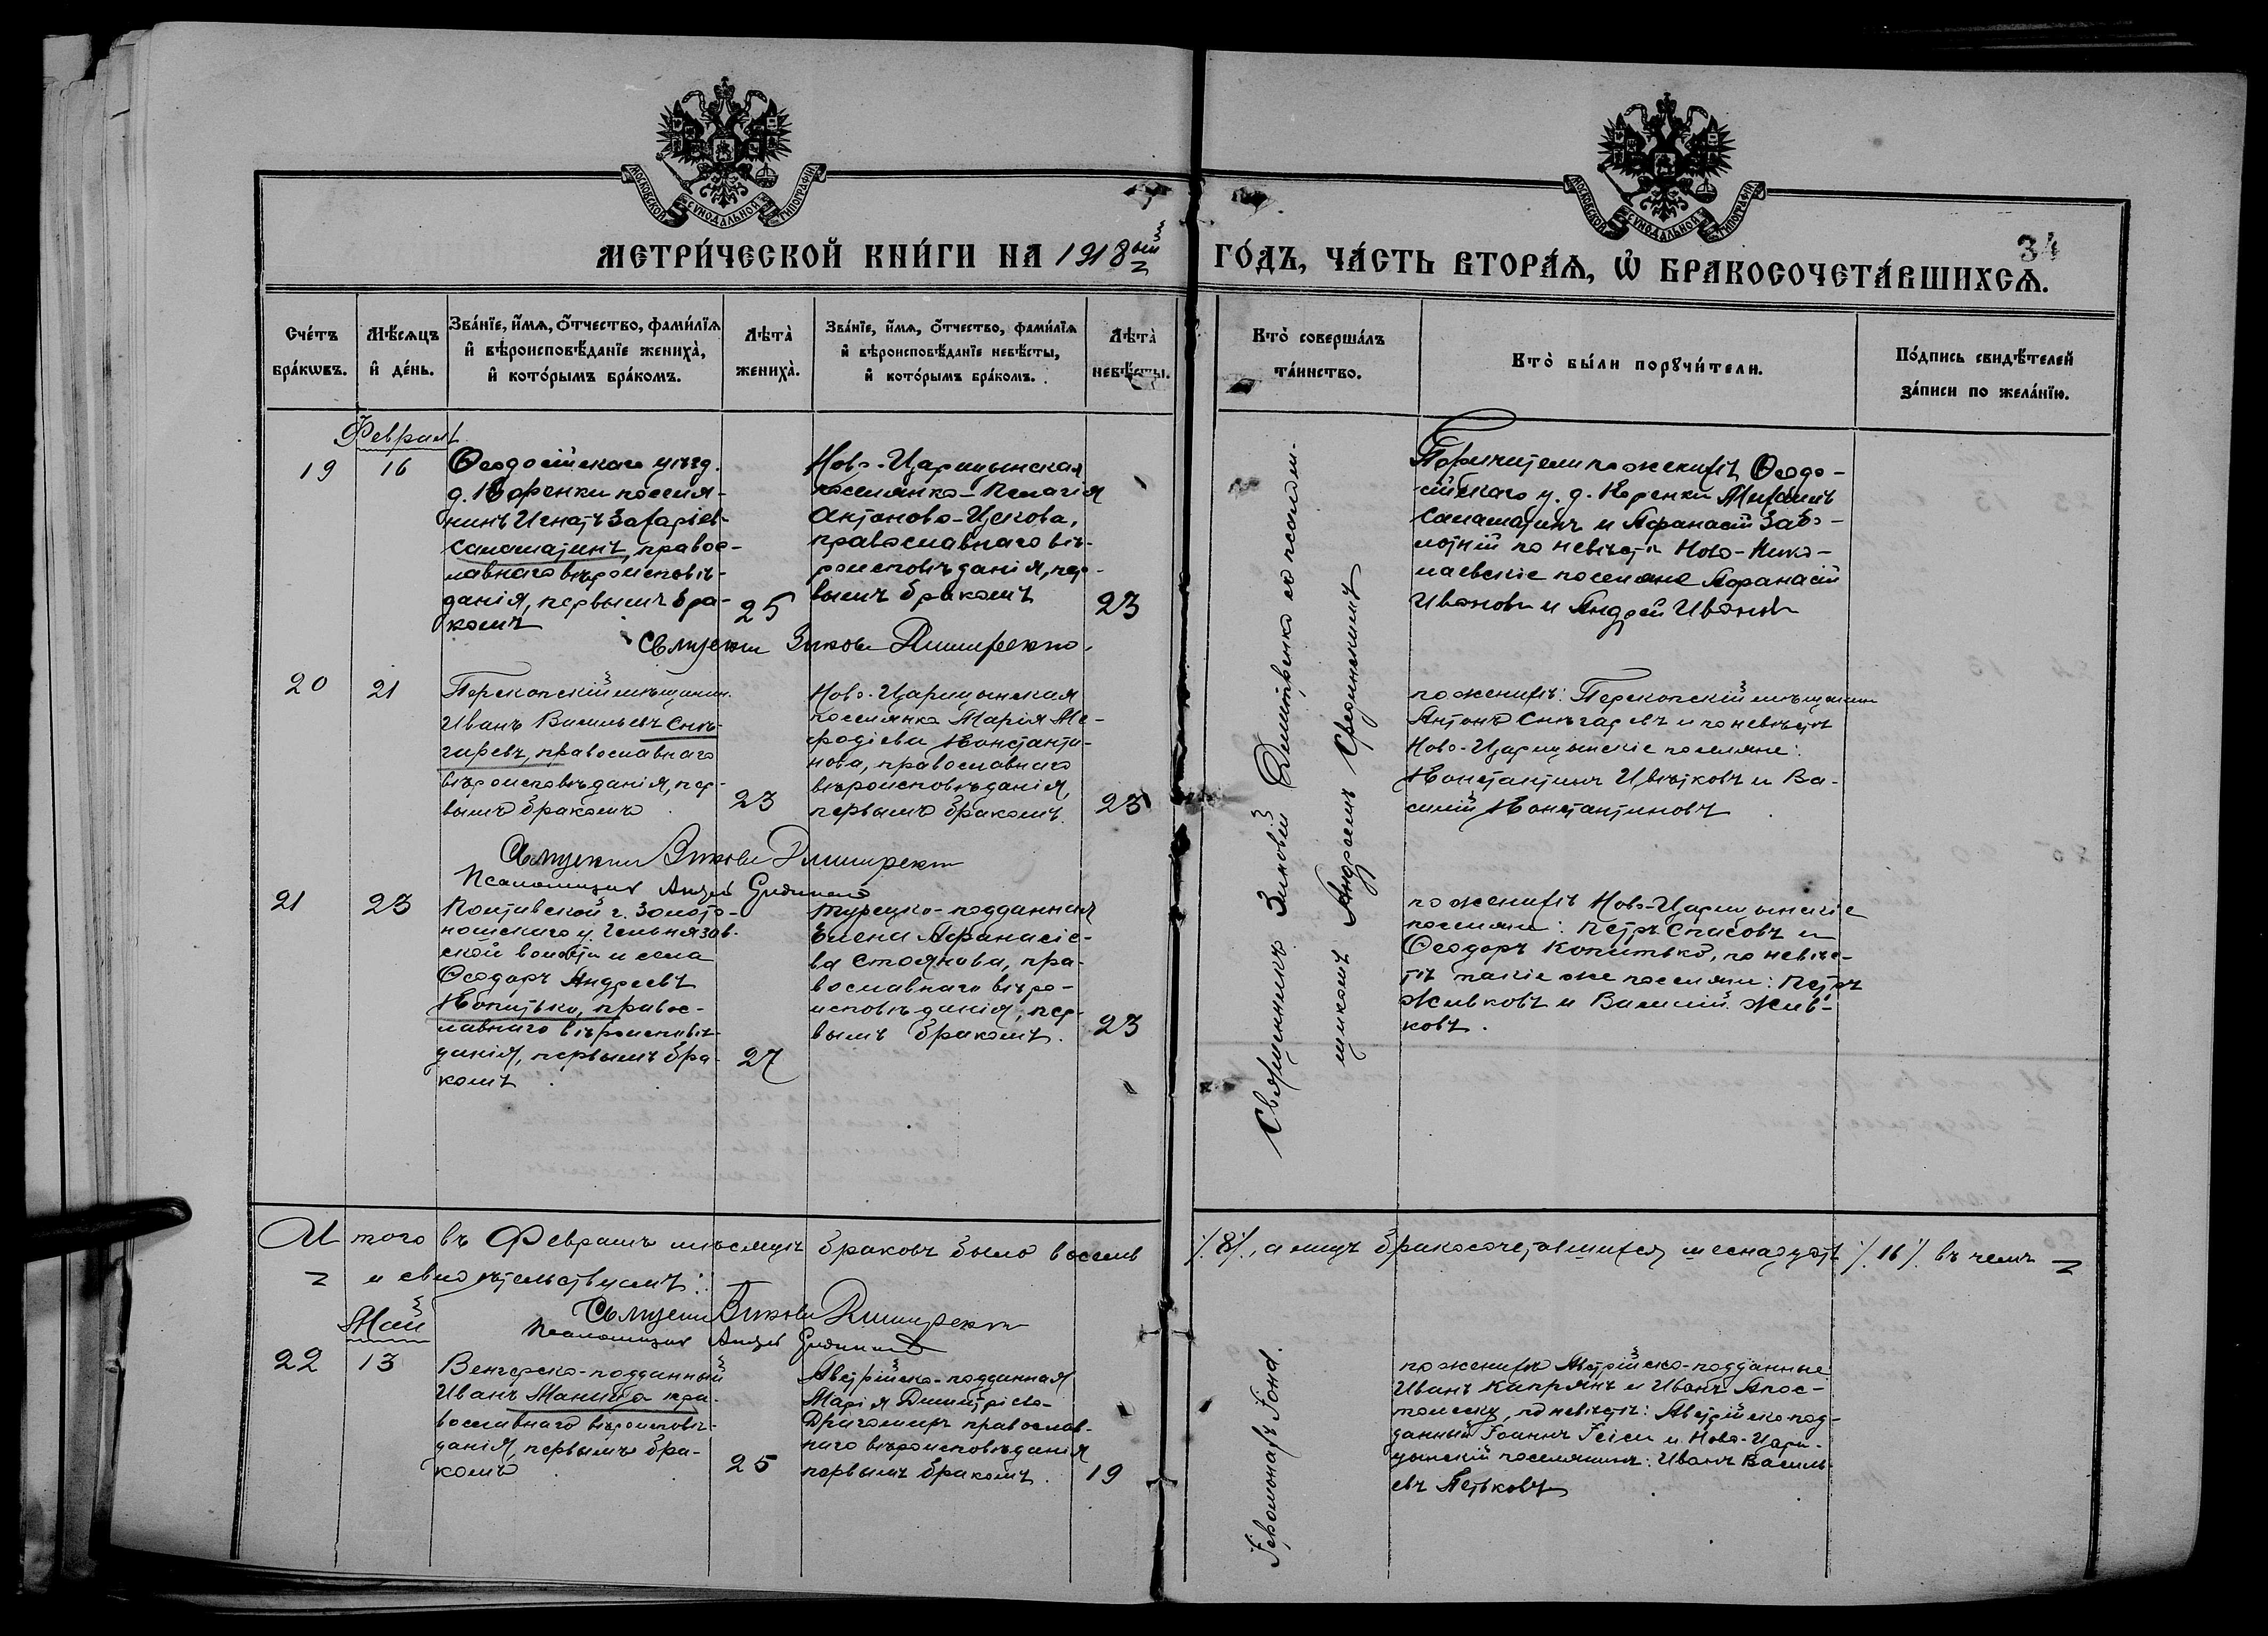 МОСКОВСКОЙ СѴНОДАЛЬНОЙ ТИПОГРАФІИ
МОСКОВСКОЙ СѴНОДАЛЬНОЙ ТИПОГРАФІИ
МЕТРИ́ЧЕСКОЙ КНИ́ГИ НА 1918ый ГО́ДЪ, ЧА́СТЬ ВТОРА́Ѧ, Ѡ҆ БРАКОСОЧЕТА́ВШИХСѦ.
34
Сче́тъ бра́кѡвъ.
Мѣ́сѧцъ и҆ де́нь.
Зва́нїе, и҆́мѧ, ѻ҆́тчество, фами́лїѧ
и҆ вѣроисповѣ́данїе жениха̀,
и҆ кото́рымъ бра́комъ.
Лѣта̀ жениха̀.
Зва́нїе, и҆́мѧ, ѻ҆́тчество, фами́лїѧ
и҆ вѣроисповѣ́данїе невѣ́сты,
и҆ кото́рымъ бра́комъ.
Лѣта̀ невѣ́сты.
Кто̀ соверша́лъ та́инство.
Кто̀ бы́ли порꙋчи́тели.
По́дпись свидѣ́телей
за́писи по жела́нїю.
Февраль
19
16
Ѳеодосійскаго уѣзд.
д. Коренки поселя-
нинъ Игнатъ Захаріев
Саломатинъ, правос-
лавнаго вѣроисповѣ-
данія, первымъ бра-
комъ
25
Ново-Царицынская
поселянка Пелагія
Антонова Цекова,
православнаго вѣ-
роисповѣданія, пер-
вымъ бракомъ
23
Священникъ Зиновій Димитренко съ псалом-
щикомъ Андреемъ
Поручители по женихѣ Ѳеодо-
сійскаго у. д. Коренки Михаилъ
Саломатинъ и Афанасій Забо-
лотній по невѣстѣ Ново-Нико-
лаевскіе поселяне Афанасій
Ивановъ и Андрей Ивановъ
Священникъ Зиновій Димитренко
20
21
Перекопскій мѣщанин.
Иванъ Васильевъ Снѣ-
гиревъ, православнаго
вѣроисповѣданія, пер-
вымъ бракомъ
23
Ново-Царицынская
поселянка Марія Ме-
фодіева Константи-
нова, православнаго
вѣроисповѣданія,
первымъ бракомъ.
23
по женихѣ: Перекопскій мѣщанин
Антонъ Снѣгирев и по невѣстѣ
Ново-Царицынскіе поселяне:
Константинъ Цвѣтковъ и Ва-
силій Константиновъ
Священникъ Зиновій Димитренко
Псаломщикъ Андрей
21
23
Полтавской г. Золото-
ношскаго у. Гельмязов-
ской волости и села
Ѳеодоръ Андреевъ
Копитько, правос-
лавнаго вѣроисповѣ-
данія, первымъ бра-
комъ
27
Турецко-подданная
Елена Афанасіе-
ва Стоянова, пра-
вославнаго вѣро-
исповѣданія, пер-
вымъ бракомъ.
23
по женихѣ Ново-Царицынскіе
поселяне: Петръ Спасовъ и
Ѳеодоръ Копитько, по невѣс-
тѣ такіе же поселяне: Петръ
Живковъ и Василій Жив-
ковъ.
Итого въ Февралѣ мѣсяцѣ браковъ было восемь /.8/., а лицъ бракосочетавшихся шеснадцать /.16/. въ чемъ
и свидѣтельствуемъ:
Священникъ Зиновій Димитренко
Псаломщикъ Андрей
Май
22
13
Венгерско-подданный
Иванъ пра-
вославнаго вѣроисповѣ-
данія, первымъ бра-
комъ
25
Австрійско-подданная
Марія Димитріева
Драгомиръ православ-
наго вѣроисповѣданія
первымъ бракомъ.
19
Іеромонахъ
по женихѣ Австрійско-подданные
Иванъ Капрянъ и Иванъ Апос-
толеску, по невѣстѣ: Австрійско-под-
данный Іоаннъ и Ново-Цари-
цынскій поселянинъ: Иванъ Василь-
евъ Петьковъ